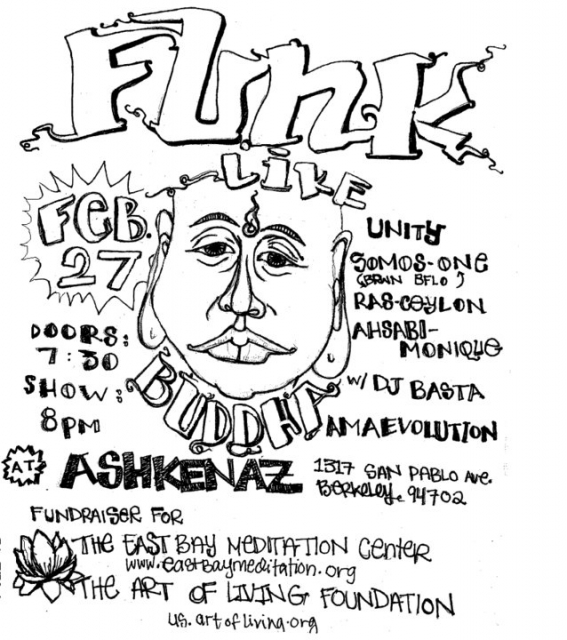 FUNK
LIKE
BUDDHA
FEB.
27
DOORS:
7:30
SHOW:
8PM
UNITY
SOMOS-ONE
(BRWN BFLO)
RAS-CEYLON
AHSABI-
MONIQUE
W/ DJ BASTA
AMAEVOLUTION
AT ASHKENAZ 1317 SAN PABLO AVE.
BERKELEY. 94702
FUNDRAISER FOR
THE EAST BAY MEDITATION CENTER
www.eastbaymeditation.org
THE ART OF LIVING FOUNDATION
us.artofliving.org